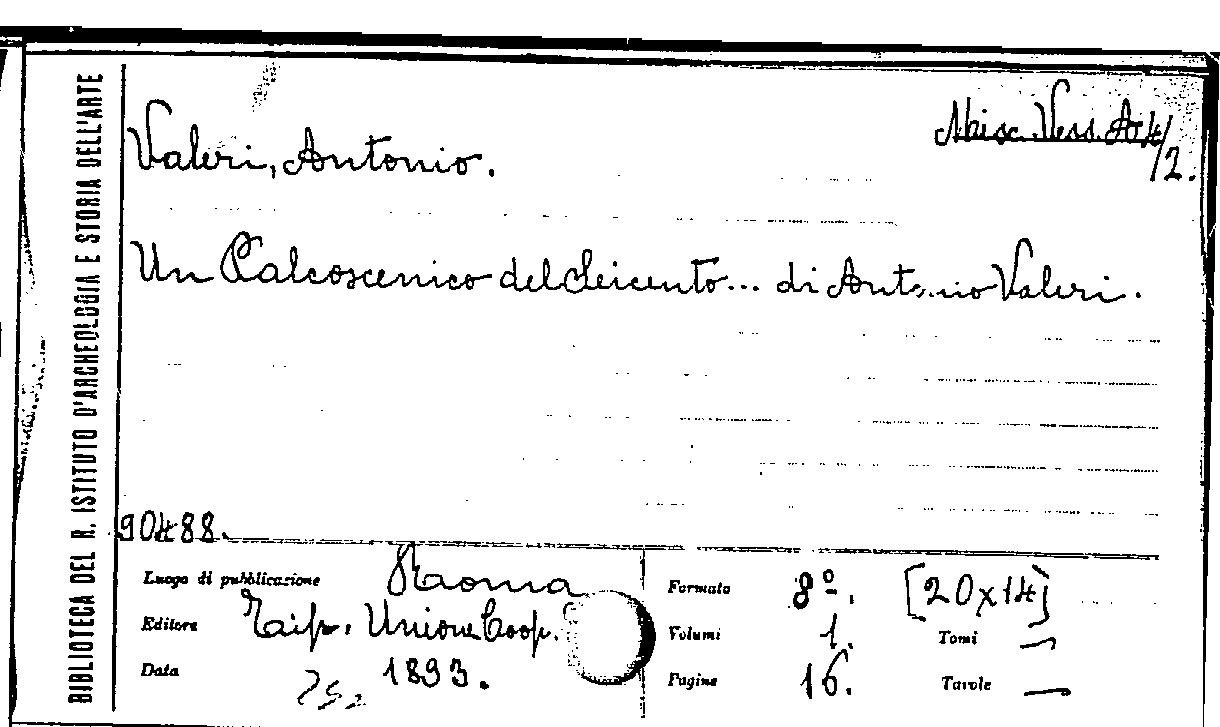 BIBLIOTECA DEL R. ISTITUTO D'ARCHEOLOGIA E STORIA DELL'ARTE
Misc. Vess. A 4/2.
Valeri, Antonio.
Un Palcoscenico del Seicento... di Antonio Valeri.
90488.
Luogo di pubblicazione Roma
Editore Tip. Unione Coop.
Data 1893.
Formato 8º. [20x14]
Volumi 1. Tomi —
Pagine 16. Tavole —